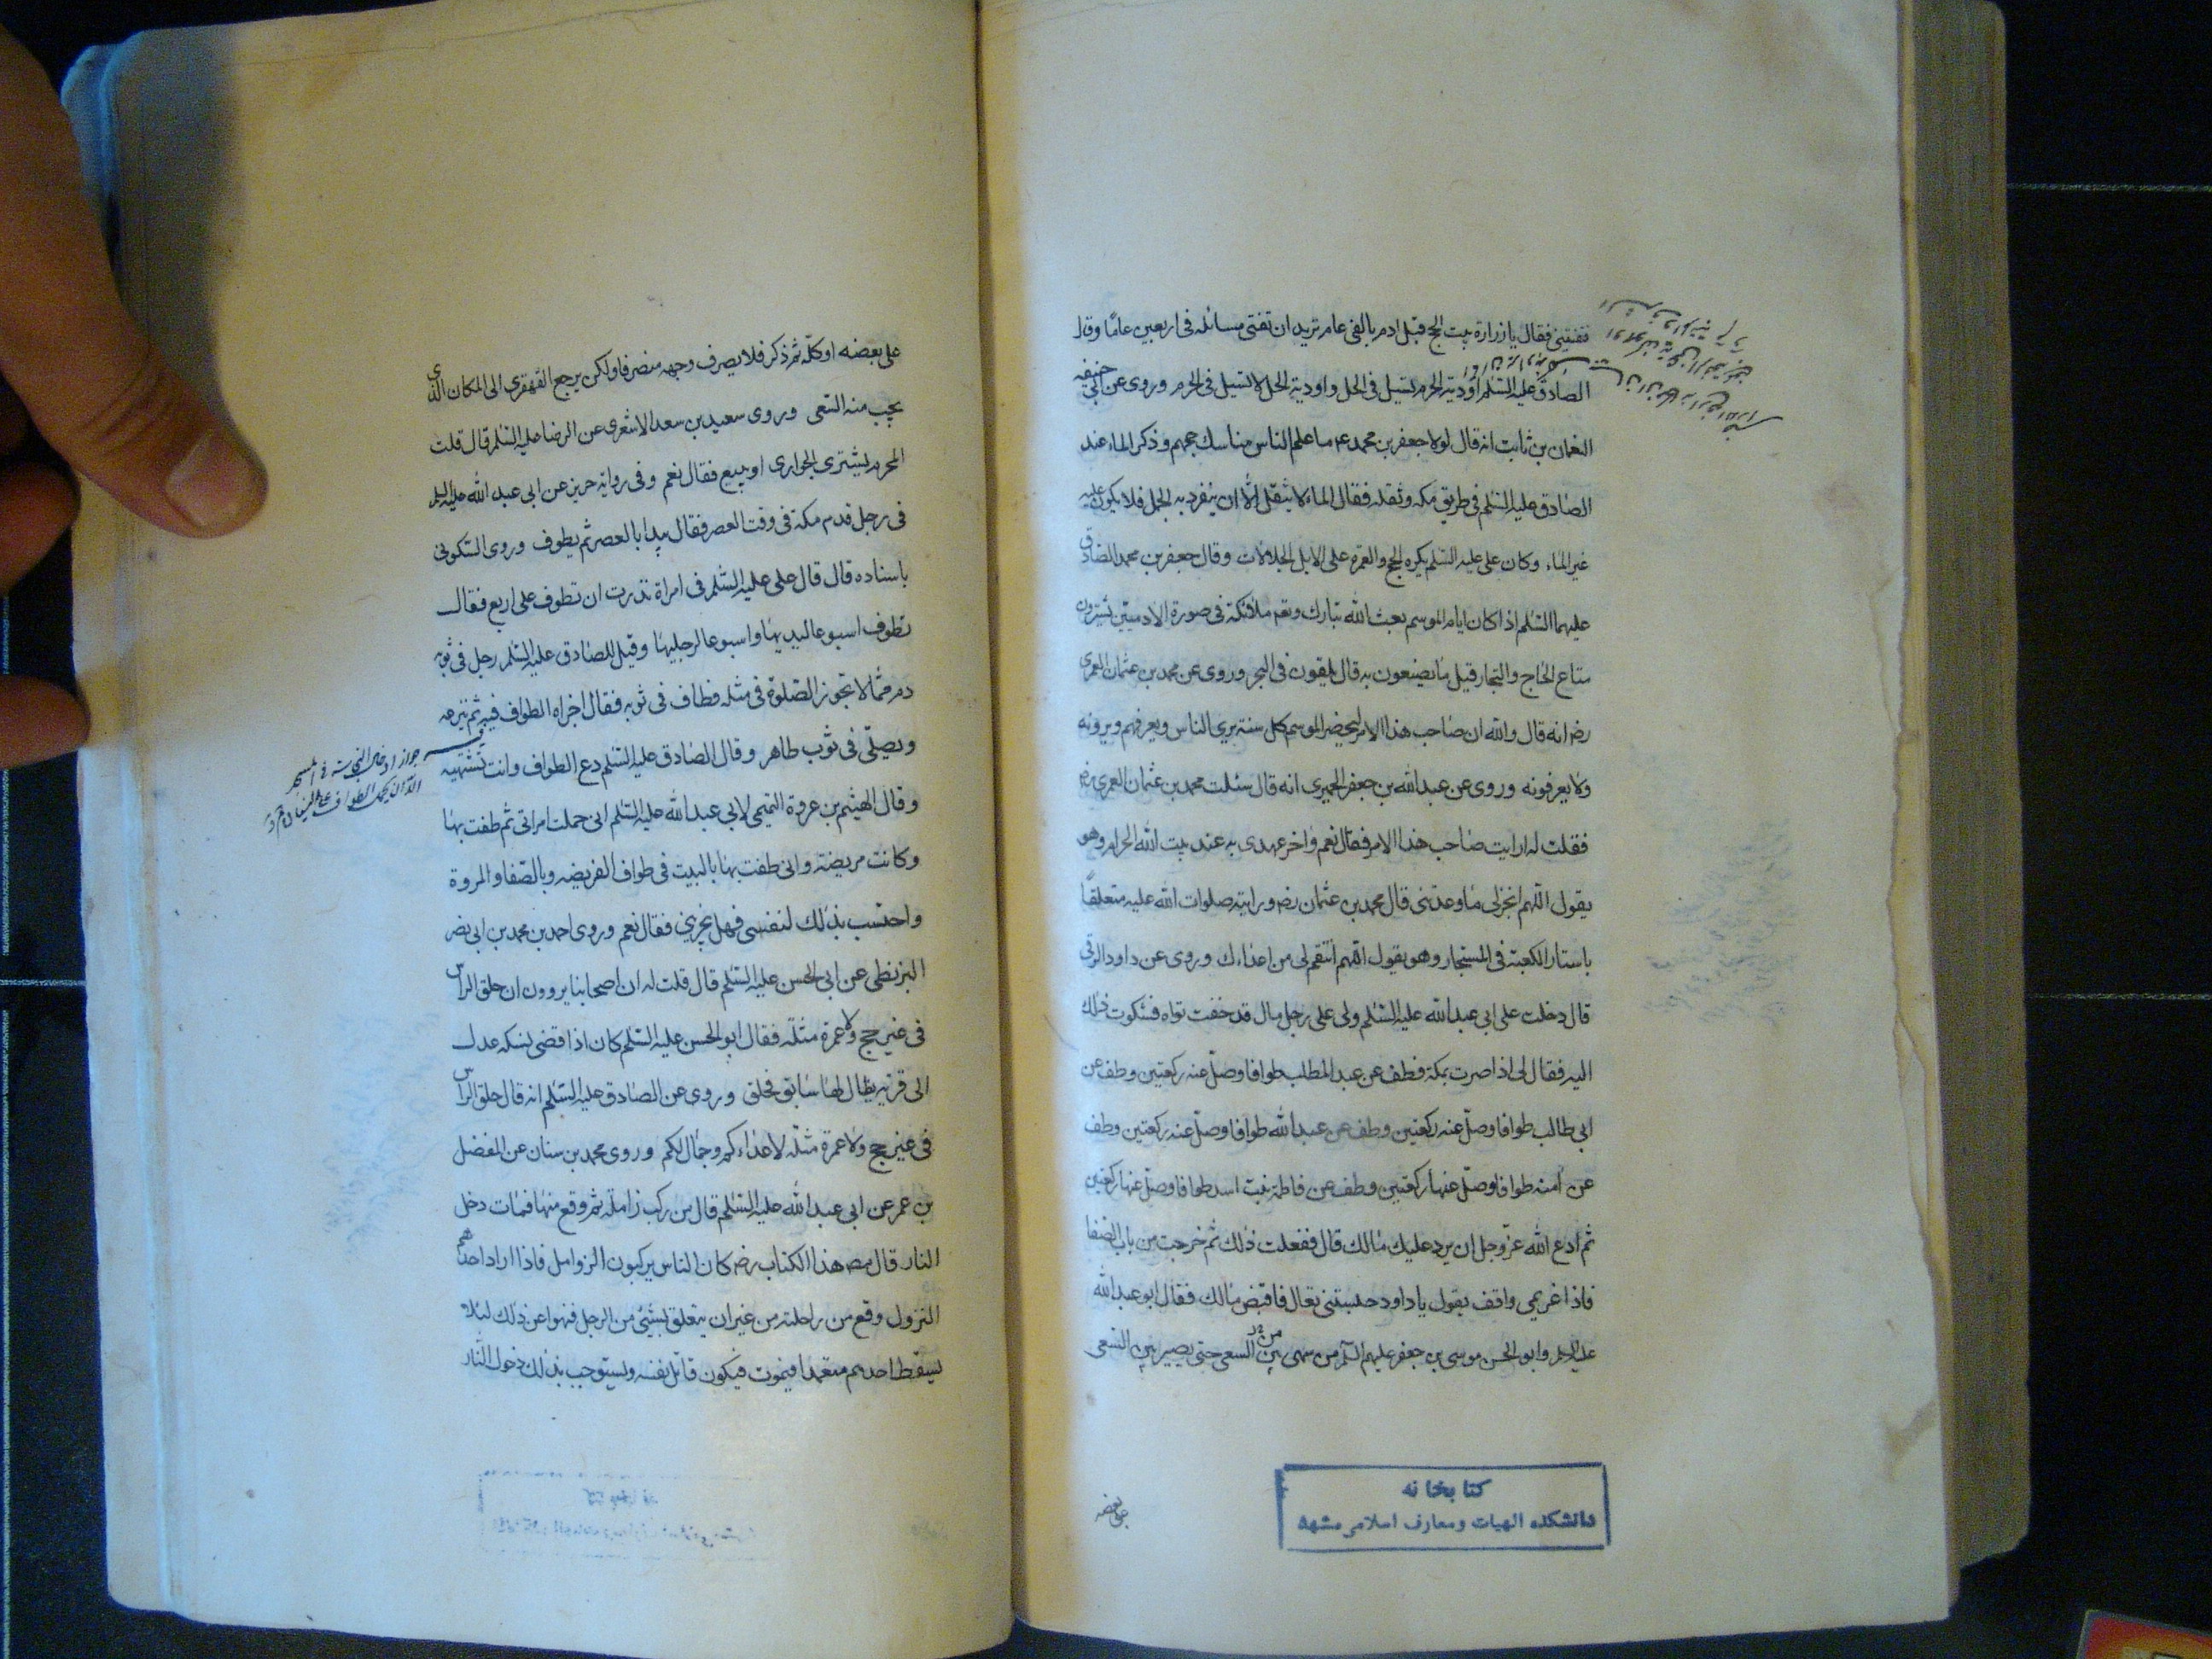 فتفتيني فقال يا زرارة بيت الحج قبل ادم بالفي عام تريد ان تفتى مسائله فى اربعين عاما وقال
الصادق عليه السلم اودية الحرم تسيل فى الحل واودية الحل لا تسيل فى الحرم وروى عن ابى حنيفه
النعمان بن ثابت انه قال لولا جعفر بن محمد ع ما علم الناس مناسك حجهم وذكر الماء عند
الصادق عليه السلم فى طريق مكه وثقله فقال الماء لا يثقل الا ان ينفرد به الجمل فلا يكون عليه
غير الماء وكان على عليه السلم يكره الحج والعمرة على الابل الجلالات وقال جعفر بن محمد الصادق
عليهما السلم اذا كان ايام الموسم بعث الله تبارك وتعم ملائكة فى صورة الادميين يشترون
متاع الحاج والتجار قيل ما يصنعون به قال يلقون فى البحر وروى عن محمد بن عثمان العمرى
رضه انه قال والله ان صاحب هذا الامر ليحضر الموسم كل سنة يرى الناس ويعرفهم ويرونه
ولا يعرفونه وروى عن عبد الله بن جعفر الحميرى انه قال سئلت محمد بن عثمان العمرى رضه
فقلت له ارايت صاحب هذا الامر فقال نعم واخر عهدى به عند بيت الله الحرام وهو
يقول اللهم انجز لى ما وعدتنى قال محمد بن عثمان رضه ورايته صلوات الله عليه متعلقا
باستار الكعبة فى المستجار وهو يقول اللهم انتقم لى من اعداءك وروى عن داود الرقى
قال دخلت على ابى عبد الله عليه السلم ولى على رجل مال قد خفت تواه فشكوت ذلك
اليه فقال لى اذا صرت بمكة فطف عن عبد المطلب طوافا وصل عنه ركعتين وطف عن
ابى طالب طوافا وصل عنه ركعتين وطف عن عبد الله طوافا وصل عنه ركعتين وطف
عن امنه طوافا وصل عنها ركعتين وطف عن فاطمة بنت اسد طوافا وصل عنها ركعتين
ثم ادع الله عز وجل ان يرد عليك مالك قال ففعلت ذلك ثم خرجت من باب الصفا
فاذا غريمى واقف يقول يا داود حبستنى تعال فاقبض مالك فقال ابو عبد الله
عليه السلم وابو الحسن موسى بن جعفر عليهم السلم من سهى من السعى حتى يصير بين السعى
على بعضه
كتابخانه
دانشكده الهيات ومعارف اسلامى مشهد
على بعضه او كله ثم ذكر فلا يصرف وجهه منصرفا ولكن يرجع القهقرى الى المكان الذى
يجب منه السعى وروى سعيد بن سعد الاشعرى عن الرضا عليه السلم قال قلت
المحرم يشترى الجوارى او يبيع فقال نعم وفى رواية حريز عن ابى عبد الله عليه السلم
فى رجل قدم مكة فى وقت العصر فقال يبدا بالعصر ثم يطوف وروى السكونى
باسناده قال قال على عليه السلم فى امراة نذرت ان تطوف على اربع فقال
تطوف اسبوعا ليديها واسبوعا لرجليها وقيل للصادق عليه السلم رجل فى ثوبه
دم مما لا تجوز الصلوة فى مثله فطاف فى ثوبه فقال اجزاه الطواف فيه ثم ينزعه
ويصلى فى ثوب طاهر وقال الصادق عليه السلم دع الطواف وانت تشتهيه
وقال الهيثم بن عروة التميمى لابى عبد الله عليه السلم انى حملت امراتى ثم طفت بها
وكانت مريضة وانى طفت بها بالبيت فى طواف الفريضه وبالصفا والمروة
واحتسب بذلك لنفسى فهل يجزينى فقال نعم وروى احمد بن محمد بن ابى نصر
البزنطى عن ابى الحسن عليه السلم قال قلت له ان اصحابنا يروون ان حلق الراس
فى غير حج ولا عمرة مثلة فقال ابو الحسن عليه السلم كان اذا قضى نسكه عدل
الى قرية يقال لها سابق فحلق وروى عن الصادق عليه السلم انه قال حلق الراس
فى غير حج ولا عمرة مثلة لاعداءكم وجمال لكم وروى محمد بن سنان عن المفضل
بن عمر عن ابى عبد الله عليه السلم قال من ركب زاملة ثم وقع منها فمات دخل
النار قال مصه هذا الكتاب رضه كان الناس يركبون الزوامل فاذا اراد احدهم
النزول وقع من راحلته من غير ان يتعلق بشيئ من الرحل فنهوا عن ذلك لئلا
يسقط احدهم متعمدا فيموت فيكون قاتل نفسه ويستوجب بذلك دخول النار
جواز ادخال النجاسة فى المسجد